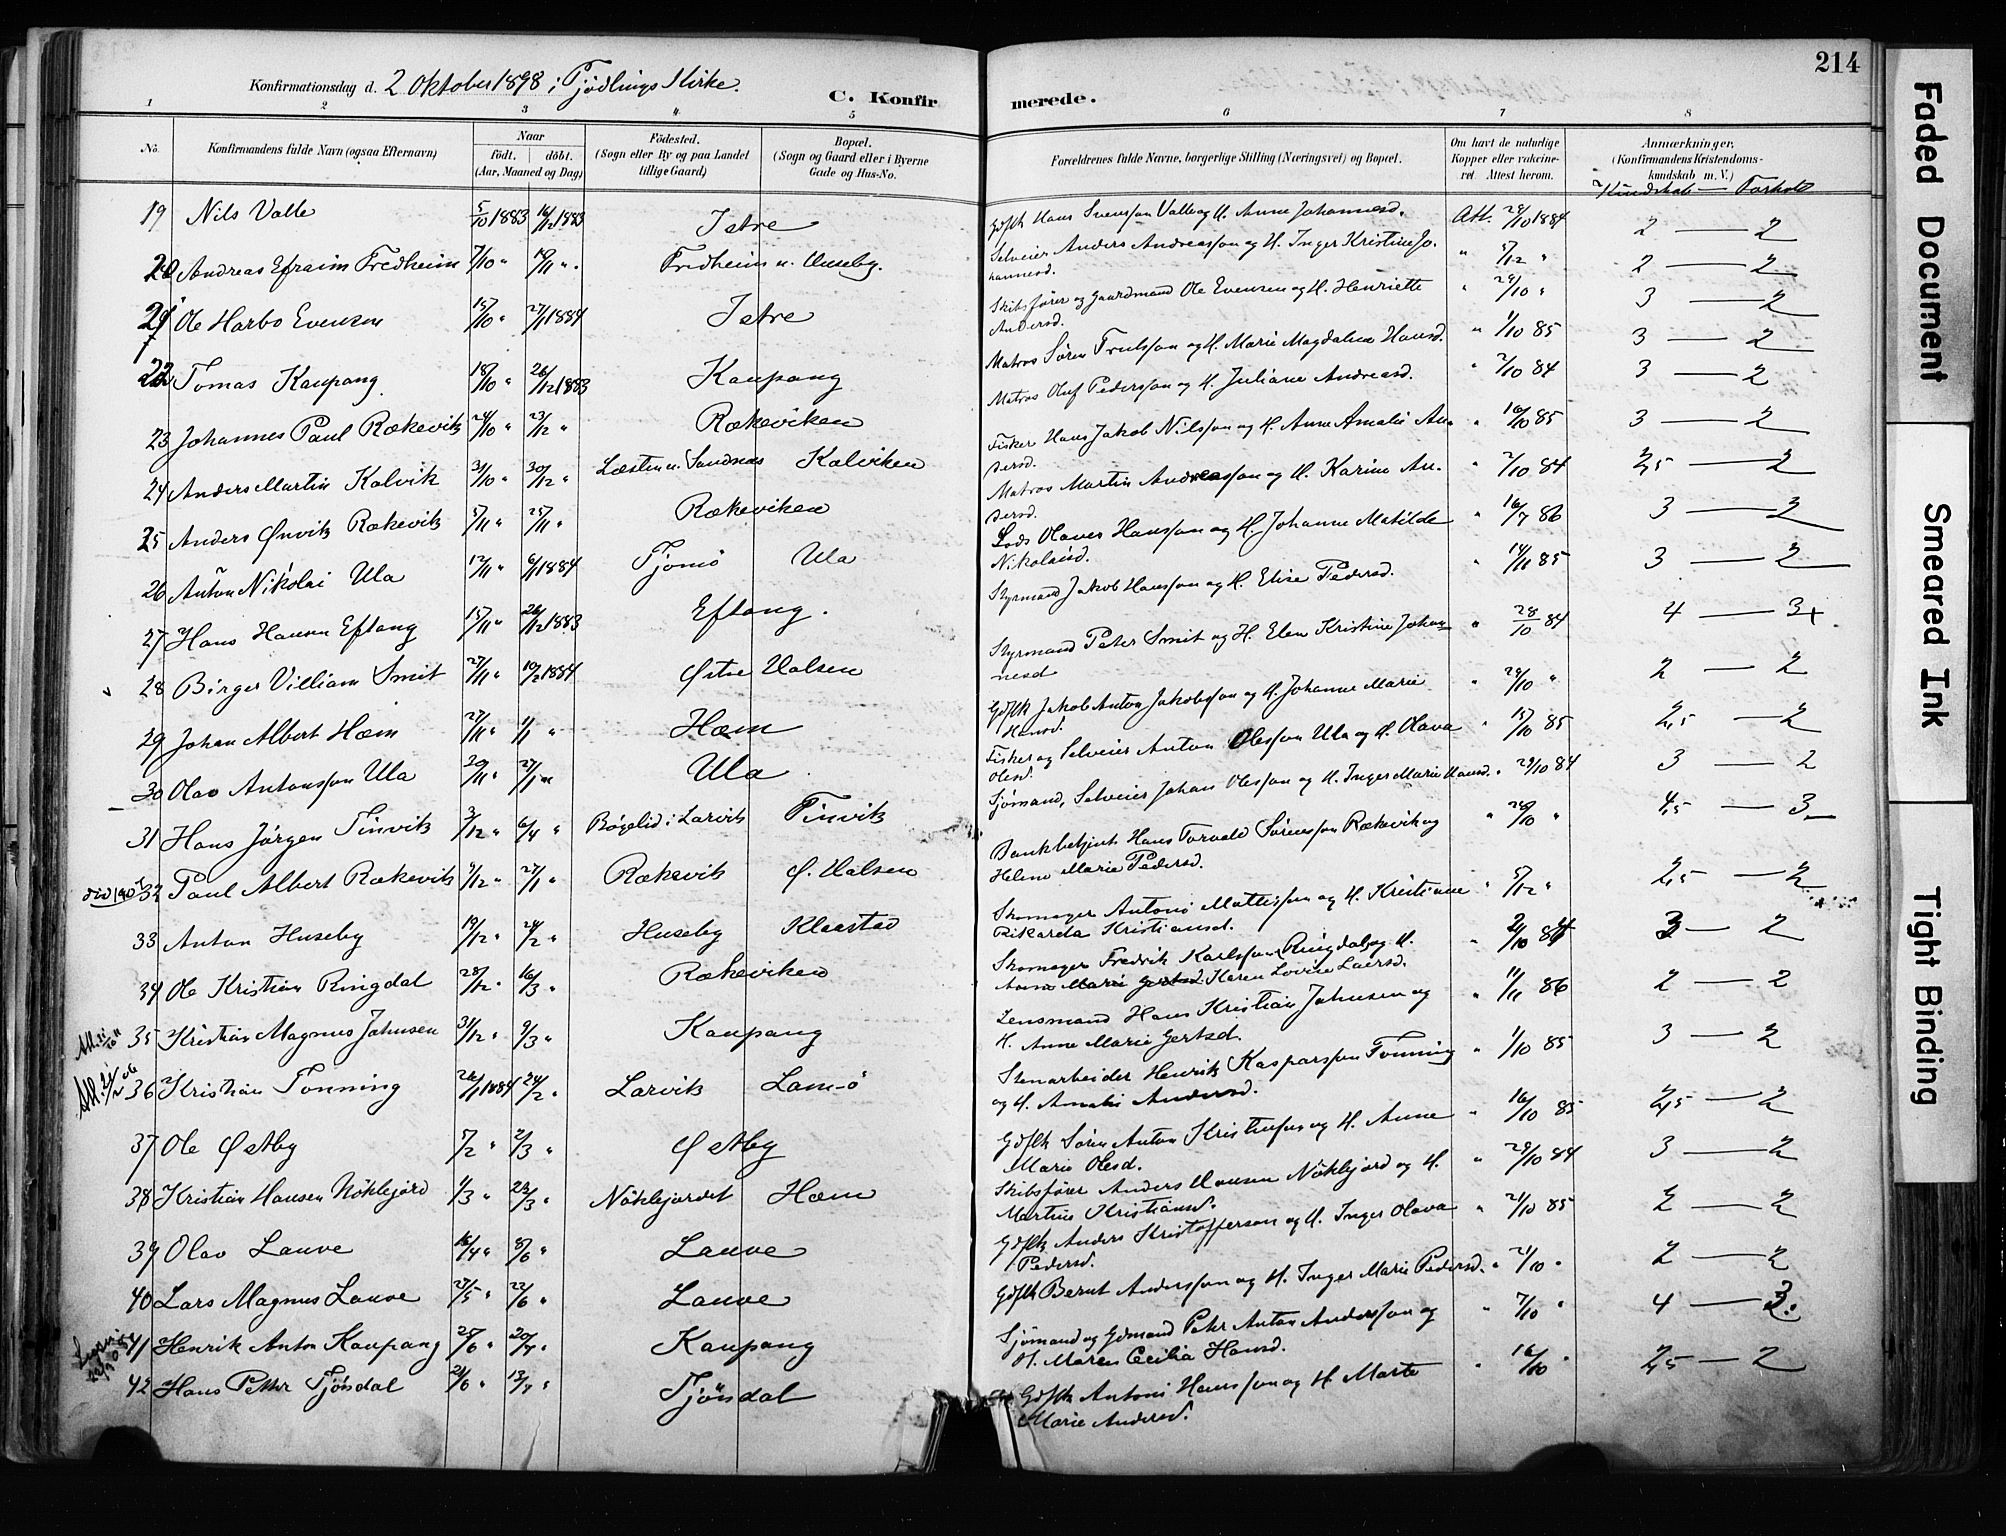 214
Konfirmationsdag d. 2 Oktober 1898 i Tjödlings Kirke.
C. Konfirmerede.
1 2 3 4 5 6 7 8
No.
Konfirmandens fulde Navn (ogsaa Efternavn)
Naar
födt. döbt.
(Aar, Maaned og Dag)
Födested.
(Sogn eller By og paa Landet tillige Gaard)
Bopæl.
(Sogn og Gaard eller i Byerne Gade og Hus-No.
Forældrenes fulde Navne, borgerlige Stilling (Næringsvei) og Bopæl.
Om havt de naturlige Kopper eller vakcineret. Attest herom.
Anmærkninger,
(Konfirmandens Kristendomskundskab m. V.)
Kundskab — Forhold
19 Nils Valle 5/10 1883 16/12 1883 Istre Gdsk Hans Svensson Valle og H. Anne Johannesd. Att. 28/10 1884 2 — 2
20 Andreas Efraim Fredheim 7/10 " 19/11 " Fredheim u. Huseby. Selveier Anders Andreasson og H. Inger Kristine Johannesd. " 5/12 " 2 — 2
21 Ole Harbo Evensen 15/10 " 27/1 1884 Istre Skibsfører og Gaardmand Ole Evensen og H. Henriette Andersd. " 28/10 " 3 — 2
22 Tomas Kaupang 18/10 " 26/12 1883 Kaupang Matros Søren Trulsson og H. Marie Magdalena Hansd. " 1/10 85 3 — 2
23 Johannes Paul Rækevik 24/10 " 23/12 " Rækeviken Matros Oluf Pedersson og H. Juliane Andreasd. " 2/10 84 3 — 2
24 Anders Martin Kalvik 31/10 " 30/12 " Læsten u. Sandnæs Kalviken Fisker Hans Jakob Nilsson og H. Anne Amalie Andersd. " 16/10 85 3 — 2
25 Anders Ønvik Rækevik 5/11 " 25/11 " Rækeviken Matros Martin Andreasson og H. Karine Andersd. " 2/10 84 2,5 — 2
26 Anton Nikolai Ula 12/11 " 6/1 1884 Tjömö Ula Lods Olaves Hansson og H. Johanne Matilde Nikolaisd. " 16/7 86 3 — 2
27 Hans Hansen Eftang 15/11 " 26/12 1883 Eftang. Styrmand Jakob Hansson og H. Elise Pedersd. " 14/11 85 3 — 2
28 Birger Villiam Smit 27/11 " 10/2 1884 Østre Halsen Styrmand Peter Smit og H. Elen Kristine Johannesd " 28/10 84 4 — 3+
29 Johan Albert Hæm 27/11 " 1/1 " Hæm Gdsk Jakob Anton Jakobsson og H. Johanne Marie Hansd. " 28/10 " 2 — 2
30 Olav Antonsson Ula 29/11 " 27/1 " Ula Fisker og Selveier Anton Olesson Ula og H. Olava Olesd. " 15/10 85 2,5 — 2
31 Hans Jørgen Tinvik 3/12 " 6/4 " Bögelid i Larvik Tinvik Sjömand, Selveier Johan Olesson og H. Inger Marie Hansd. " 29/10 84 3 — 2
32 Paul Albert Rækevik 9/12 " 27/1 " Rækevik Ø. Halsen Bankbetjent Hans Torvald Sørensson Rækevik og Helene Marie Pedersd. " 28/10 " 4,5 — 3
33 Anton Huseby 19/12 " 24/2 " Huseby Klaastad Skomager Antoni Mattisson og H. Kristiane Rikarda Kristiansd. " 5/12 " 2,5 — 2
34 Ole Kristian Ringdal 28/12 " 16/3 " Rækeviken Skomager Fredrik Karlsson Ringdal og H. Anne Marie Gertsd. Karen Lovise Laersd. " 2/10 84 3 — 2
35 Kristian Magnus Johnsen 31/12 " 9/3 " Kaupang Lensmand Hans Kristian Johnsen og H. Anne Marie Gertsd. " 11/11 86 2 — 2
36 Kristian Tonning 26/1 1884 24/2 " Larvik Lamö Stenarbeider Henrik Kasparsson Tonning og H. Amalie Andersd. " 1/10 85 3 — 2
37 Ole Østby 5/2 " 2/3 " Østby Gdsk Søren Anton Kristensen og H. Anne Marie Olesd. " 16/10 85 2,5 — 2
38 Kristian Hansen Nöklejord 1/3 " 23/3 " Nöklejordet Hæm Skibsfører Anders Hansen Nöklejord og H. Martine Kristiansd. " 28/10 84 3 — 2
39 Olav Lauve 16/4 " 8/6 " Lauve Gdsk Anders Kristofferson og H. Inger Olava Pedersd. " 21/10 85 2 — 2
40 Lars Magnus Lauve 27/5 " 22/6 " Lauve Gdsk Bernt Andersson og H. Inger Marie Pedersd. " 21/10 " 2 — 2
41 Henrik Anton Kaupang 25/6 " 20/7 " Kaupang Sjömand og Gdmand Peter Anton Andersson og H. Maren Cecilia Hansd. " 7/10 " 4 — 3.
42 Hans Petter Tjöndal 21/6 " 13/7 " Tjöndal Gdsk Antoni Hansson og H. Marte Marie Andersd. " 16/10 " 2,5 — 2
Faded Document
Smeared Ink
Tight Binding